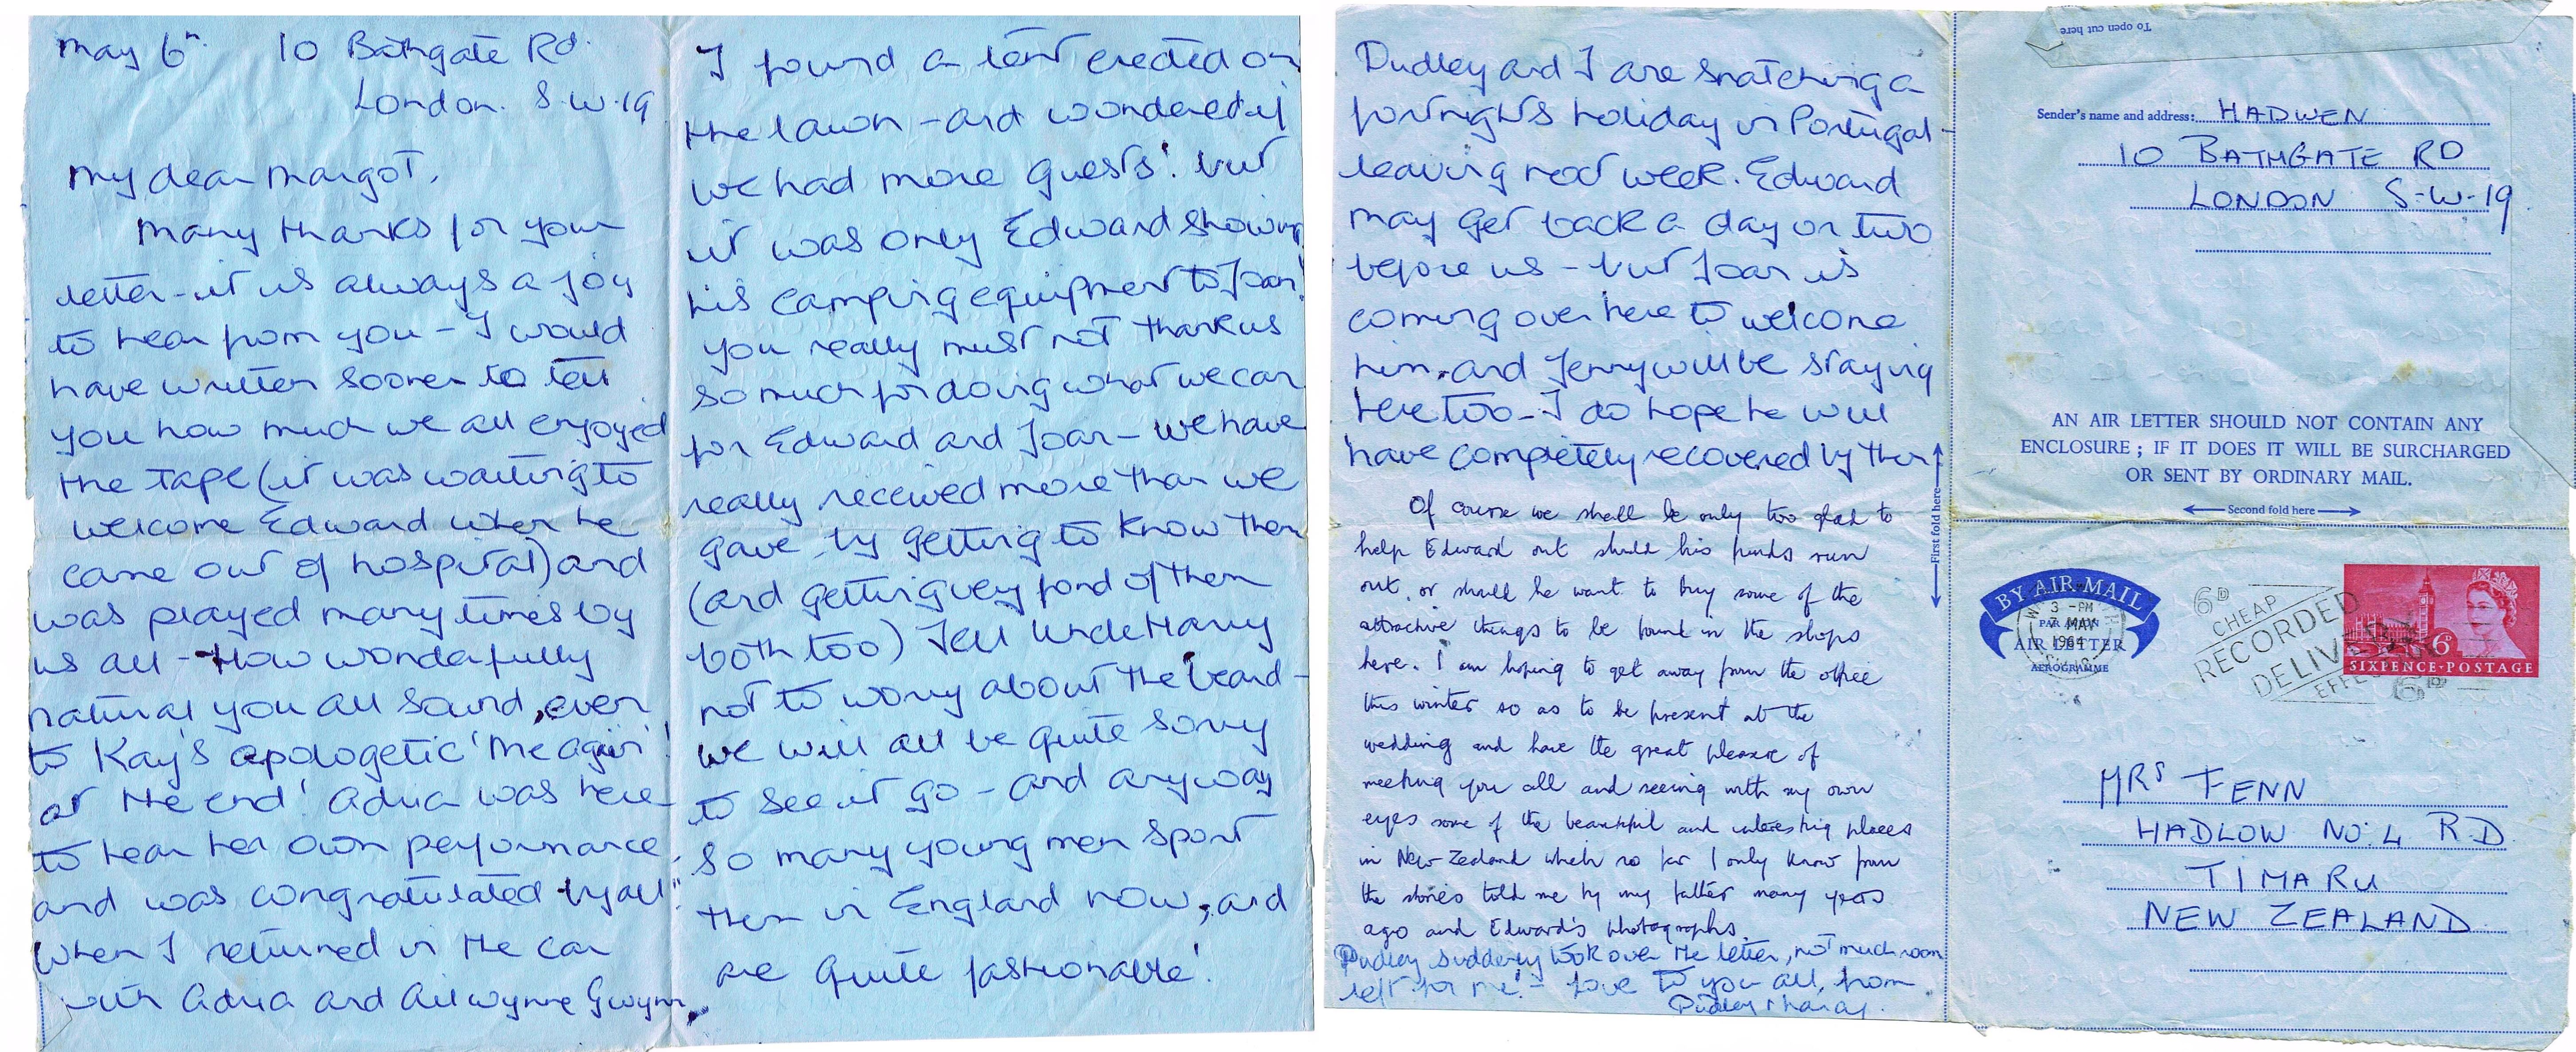 May 6th. 10 Bathgate Rd.
London. S.W.19
My dear Margot,
Many thanks for your
letter - it is always a joy
to hear from you - I would
have written sooner to tell
you how much we all enjoyed
the tape (it was waiting to
welcome Edward when he
came out of hospital) and
was played many times by
us all - How wonderfully
natural you all sound, even
to Kay's apologetic 'me again'!
at the end! Adria was here
to hear her own performance
and was congratulated by all"
When I returned in the car
with Adria and Ailwynne Gwynn,
I found a tent erected on
the lawn - and wondered if
we had more guests! but
it was only Edward showing
his camping equipment to Joan!
You really must not thank us
so much for doing what we can
for Edward and Joan - we have
really received more than we
gave by getting to know them
(and getting very fond of them
both too) Tell Uncle Harry
not to worry about the beard -
we will all be quite sorry
to see it go - and anyway
so many young men sport
them in England now, and
are quite fashionable!
Dudley and I are snatching a
fortnight's holiday in Portugal -
leaving next week. Edward
may get back a day or two
before us - but Joan is
coming over here to welcome
him. and Jenny will be staying
here too - I do hope he will
have completely recovered by then
Of course we shall be only too glad to
help Edward out should his funds run
out, or should he want to buy some of the
attractive things to be found in the shops
here. I am hoping to get away from the office
this winter so as to be present at the
wedding and have the great pleasure of
meeting you all and seeing with my own
eyes some of the beautiful and interesting places
in New Zealand which so far I only know from
the stories told me by my father many years
ago and Edward's photographs.
Dudley suddenly took over the letter, not much room
left for me! - love to you all, from
Dudley &
First fold here
To open cut here
Sender's name and address: HADWEN
10 BATHGATE RD
LONDON S-W-19
AN AIR LETTER SHOULD NOT CONTAIN ANY
ENCLOSURE ; IF IT DOES IT WILL BE SURCHARGED
OR SENT BY ORDINARY MAIL.
Second fold here
BY AIR MAIL
PAR AVION
AIR LETTER
AEROGRAMME
3 -PM
7 MAY
1964
6D
CHEAP
RECORDED
DELIVERY
6D
6
SIXPENCE·POSTAGE
MRS FENN
HADLOW NO. 4 R.D.
TIMARU
NEW ZEALAND